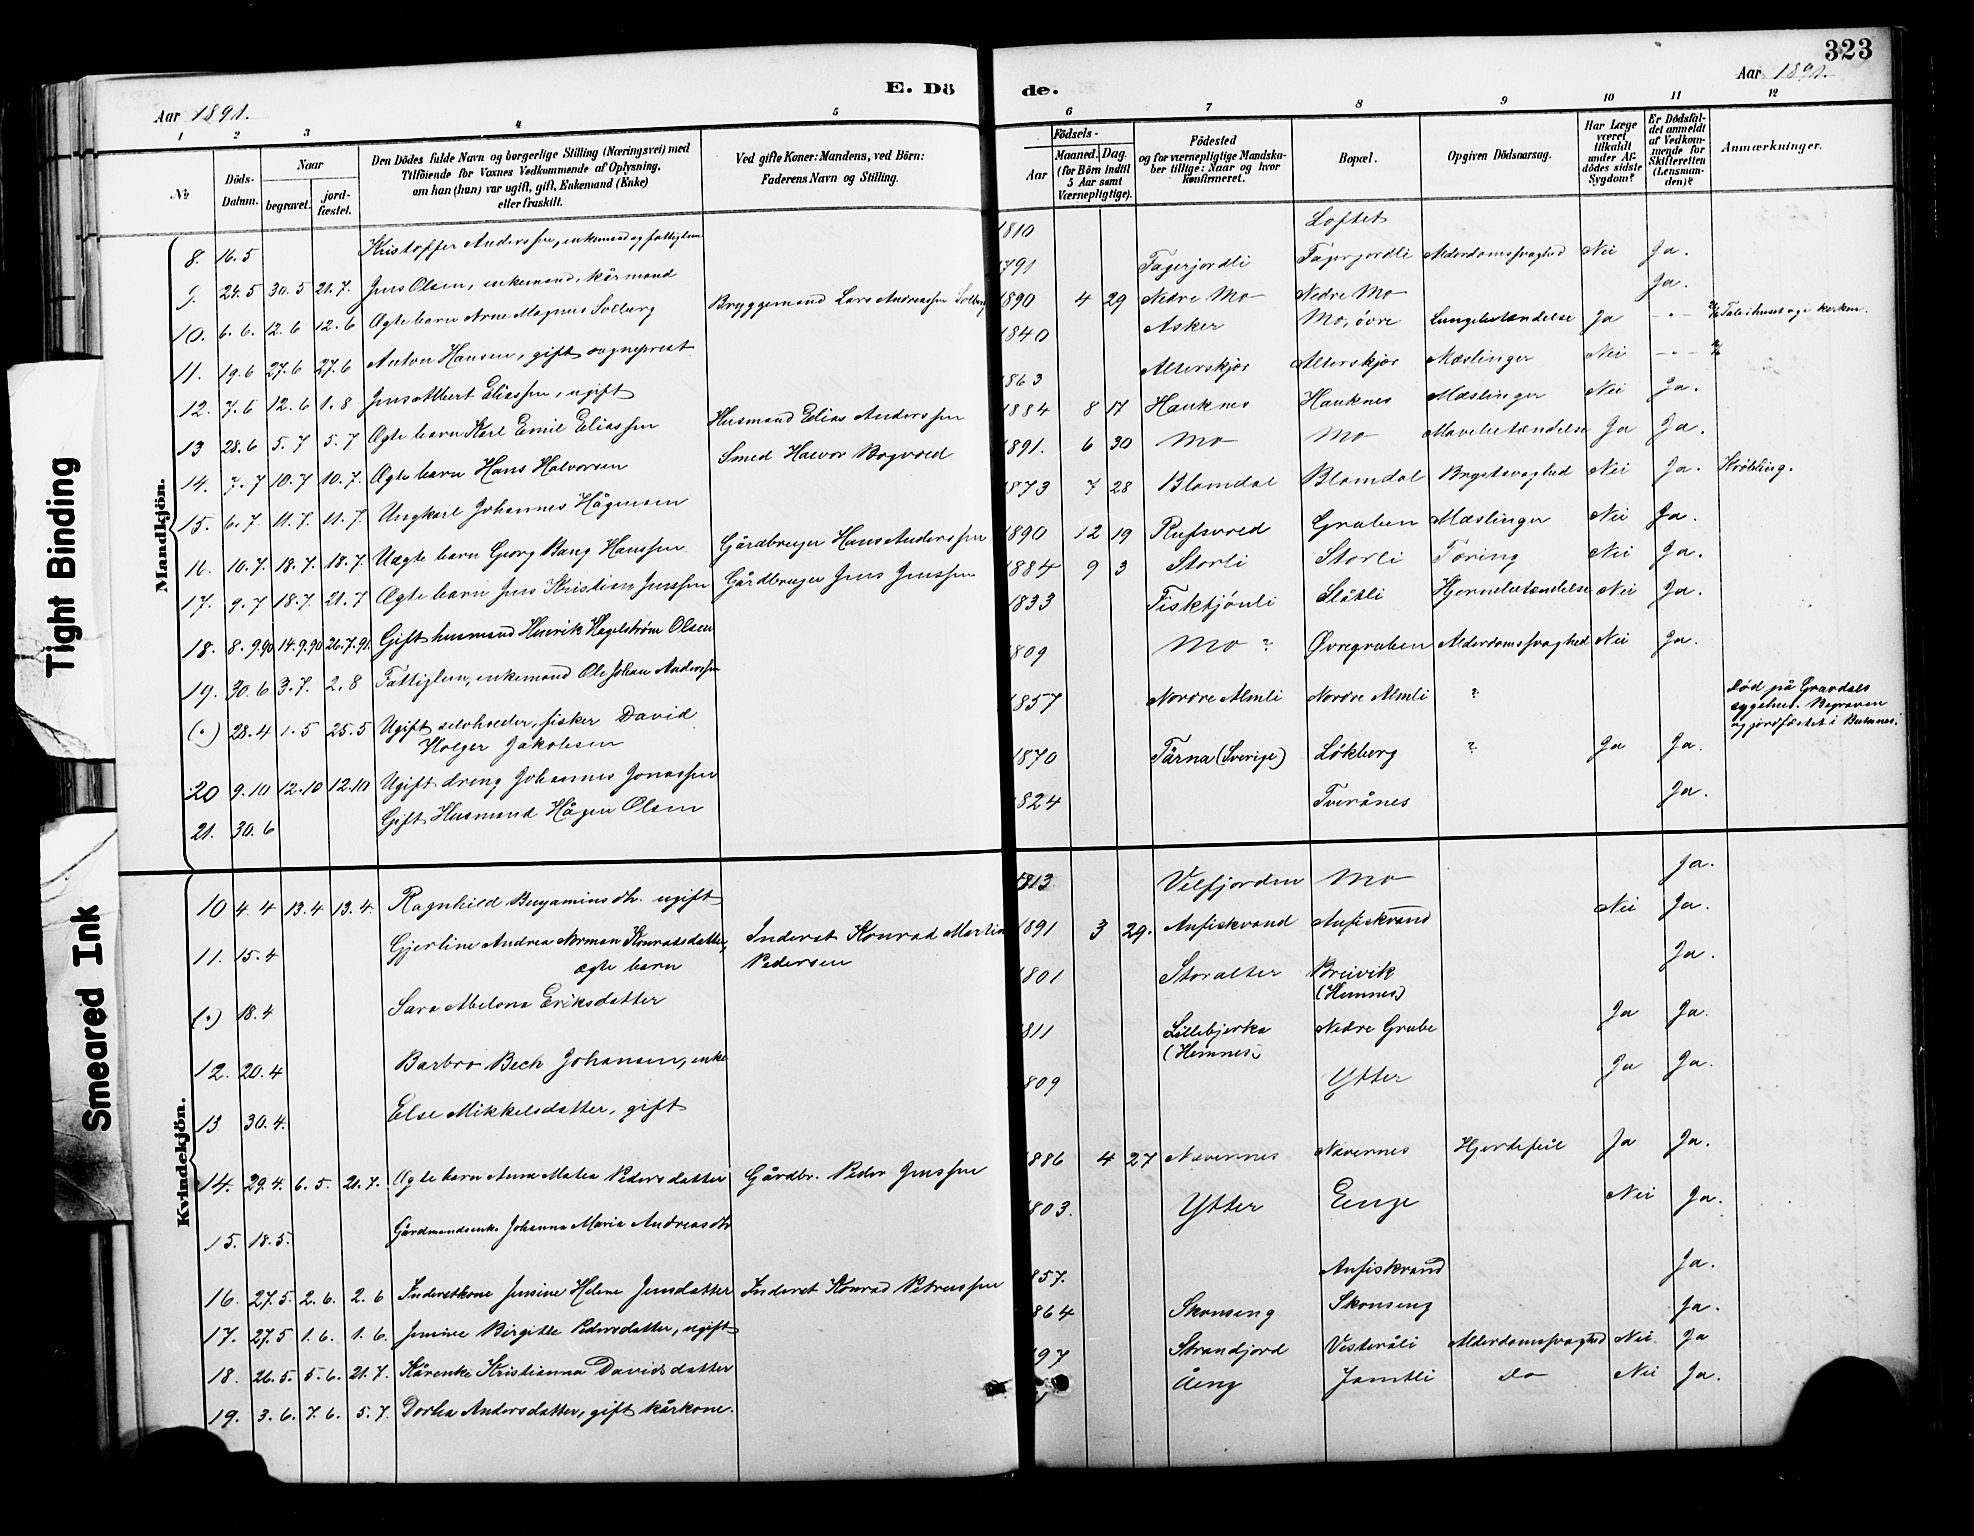 323
E. Dö de.
Aar 1891.
Aar 1891.
1 2 3 4 5 6 7 8 9 10 11 12
No.
Döds-Datum.
Naar
begravet.
jord-fæstet.
Den Dödes fulde Navn og borgerlige Stilling (Næringsvei) med
Tilföiende for Voxnes Vedkommende af Oplysning,
om han (hun) var ugift, gift, Enkemand (Enke)
eller fraskilt.
Ved gifte Koner: Mandens, ved Börn:
Faderens Navn og Stilling.
Födsels-
Aar
Maaned. Dag.
(for Börn indtil
5 Aar samt
Værnepligtige).
Födested
og for værnepligtige Mandska-
ber tillige: Naar og hvor
konfirmeret.
Bopæl.
Opgiven Dödsaarsag.
Har Læge
været
tilkaldt
under Af-
dödes sidste
Sygdom?
Er Dödsfal-
det anmeldt
af Vedkom-
mende for
Skifteretten
(Lensman-
den)?
Anmærkninger.
Mandkjön.
8. 16.5 Kristoffer Anderssen, enkemand og fattiglem 1810 Loftet
9. 24.5 30.5 21.7. Jens Olsen, enkemand, kårmand 1791 Fagerjordli Fagerjordli Alderdomssvaghed Nei Ja.
10. 6.6. 12.6 12.6 Ægte barn Arne Magnus Solberg Bryggemand Lars Andreassen Solberg 1890 4 29 Nedre Mo Nedre Mo Ja.
11. 19.6 27.6 27.6 Anton Hansen, gift sogneprest 1840 Asker Mo, övre Lungebetændelse Ja -"- Tale i huset og i kirken.
12. 7.6 12.6 1.8 Jens Albert Eliassen, ugift 1863 Alterskjær Alterskjær Mæslinger Nei -"-
13 28.6 5.7 5.7 Ægte barn Karl Emil Eliassen Husmand Elias Anderssen 1884 8 17 Hauknes Hauknes Mæslinger Nei Ja.
14. 7.7 10.7 10.7. Ægte barn Hans Halvorsen Smed Halvor Bogvold 1891. 6 30 Mo Mo Mavebetændelse Ja Ja.
15. 6.7. 11.7. 11.7. Ungkarl Johannes Hågensen 1873 7 28 Blomdal Blomdal Brystsvaghed Nei Ja. Krøbling.
16. 10.7. 18.7. 18.7. Uægte barn Georg Bang Hanssen Gårdbruger Hans Anderssen 1890 12 19 Rufsvold Gruben Mæslinger Nei Ja.
17. 9.7 18.7. 21.7 Ægte barn Jens Kristian Jenssen Gårdbruger Jens Jenssen 1884 9 3 Storli Storli Tæring Nei Ja.
18. 8.9.90 14.9.90 26.7.91. Gift husmand Henrik Hagelstrøm Olsen 1833 Fisktjönli Slåtli Hjernebetændelse Nei Ja.
19. 30.6 3.7. 2.8 Fattiglem, enkemand Ole Johan Anderssen 1809 Mo ? Øvregruben Alderdomssvaghed Nei Ja.
(") 28.4 1.5 25.5 Ugift selvhveder, fisker David
Holger Jakobsen 1857 Nordre Almli Nordre Almli ? Død på Gravdals
sygehus. Begraven
og jordfæstet i Buksnes.
20 9.10 12.10 12.10 Ugift dreng Johannes Jonassen 1870 Tärna (Sverige) Lökberg ? Ja Ja.
21. 30.6 Gift Husmand Hågen Olsen 1824 Tverånes Ja.
Kvindekjön.
10 4.4 13.4 13.4. Ragnhild Benjaminsdtr. ugift 1813 Velfjorden Mo Ja.
11. 15.4 Gjerline Andrea Norman Konradsdatter,
ægte barn Inderst Konrad Martin
Pedersen 1891 3 29. Anfiskvand Anfiskvand Nei Ja.
(") 18.4 Sara Abelona Eriksdatter 1801 Storalter Breivik
(Hemnes) Ja.
12. 20.4 Barbro Bech Johansen, enke 1811 Lillebjerka
(Hemnes) Nedre Grube Ja Ja.
13 30.4. Else Mikkelsdatter, gift 1809 Ytter Ja Ja.
14. 29.4. 6.5. 21.7. Ægte barn Anne Matea Pedersdatter Gårdbr. Peder Jenssen 1886 4 27 Nævernes Nævernes Hjertefeil Ja Ja.
15. 18.5. Gårdmandsenke Johanna Maria Andreasdtr 1803. Ytter Enge Nei Ja.
16. 27.5. 2.6. 2.6 Inderstkone Jensine Helene Jensdatter Inderst Konrad Petrussen 1857. Anfiskvand Ja.
17. 27.5 1.6. 1.6. Jensine Birgitte Pedersdatter, ugift 1864 Skonseng Skonseng Ja.
18. 26.5. 5.6. 21.7. Kårenke Kristianna Davidsdatter 197 Strandjord Vesteråli Alderdomssvaghed Nei Ja
19. 3.6. 7.6. 5.7. Dorthea Andersdatter, gift kårkone. Åeng Jamtli Do Nei Ja.
Tight Binding
Smeared Ink